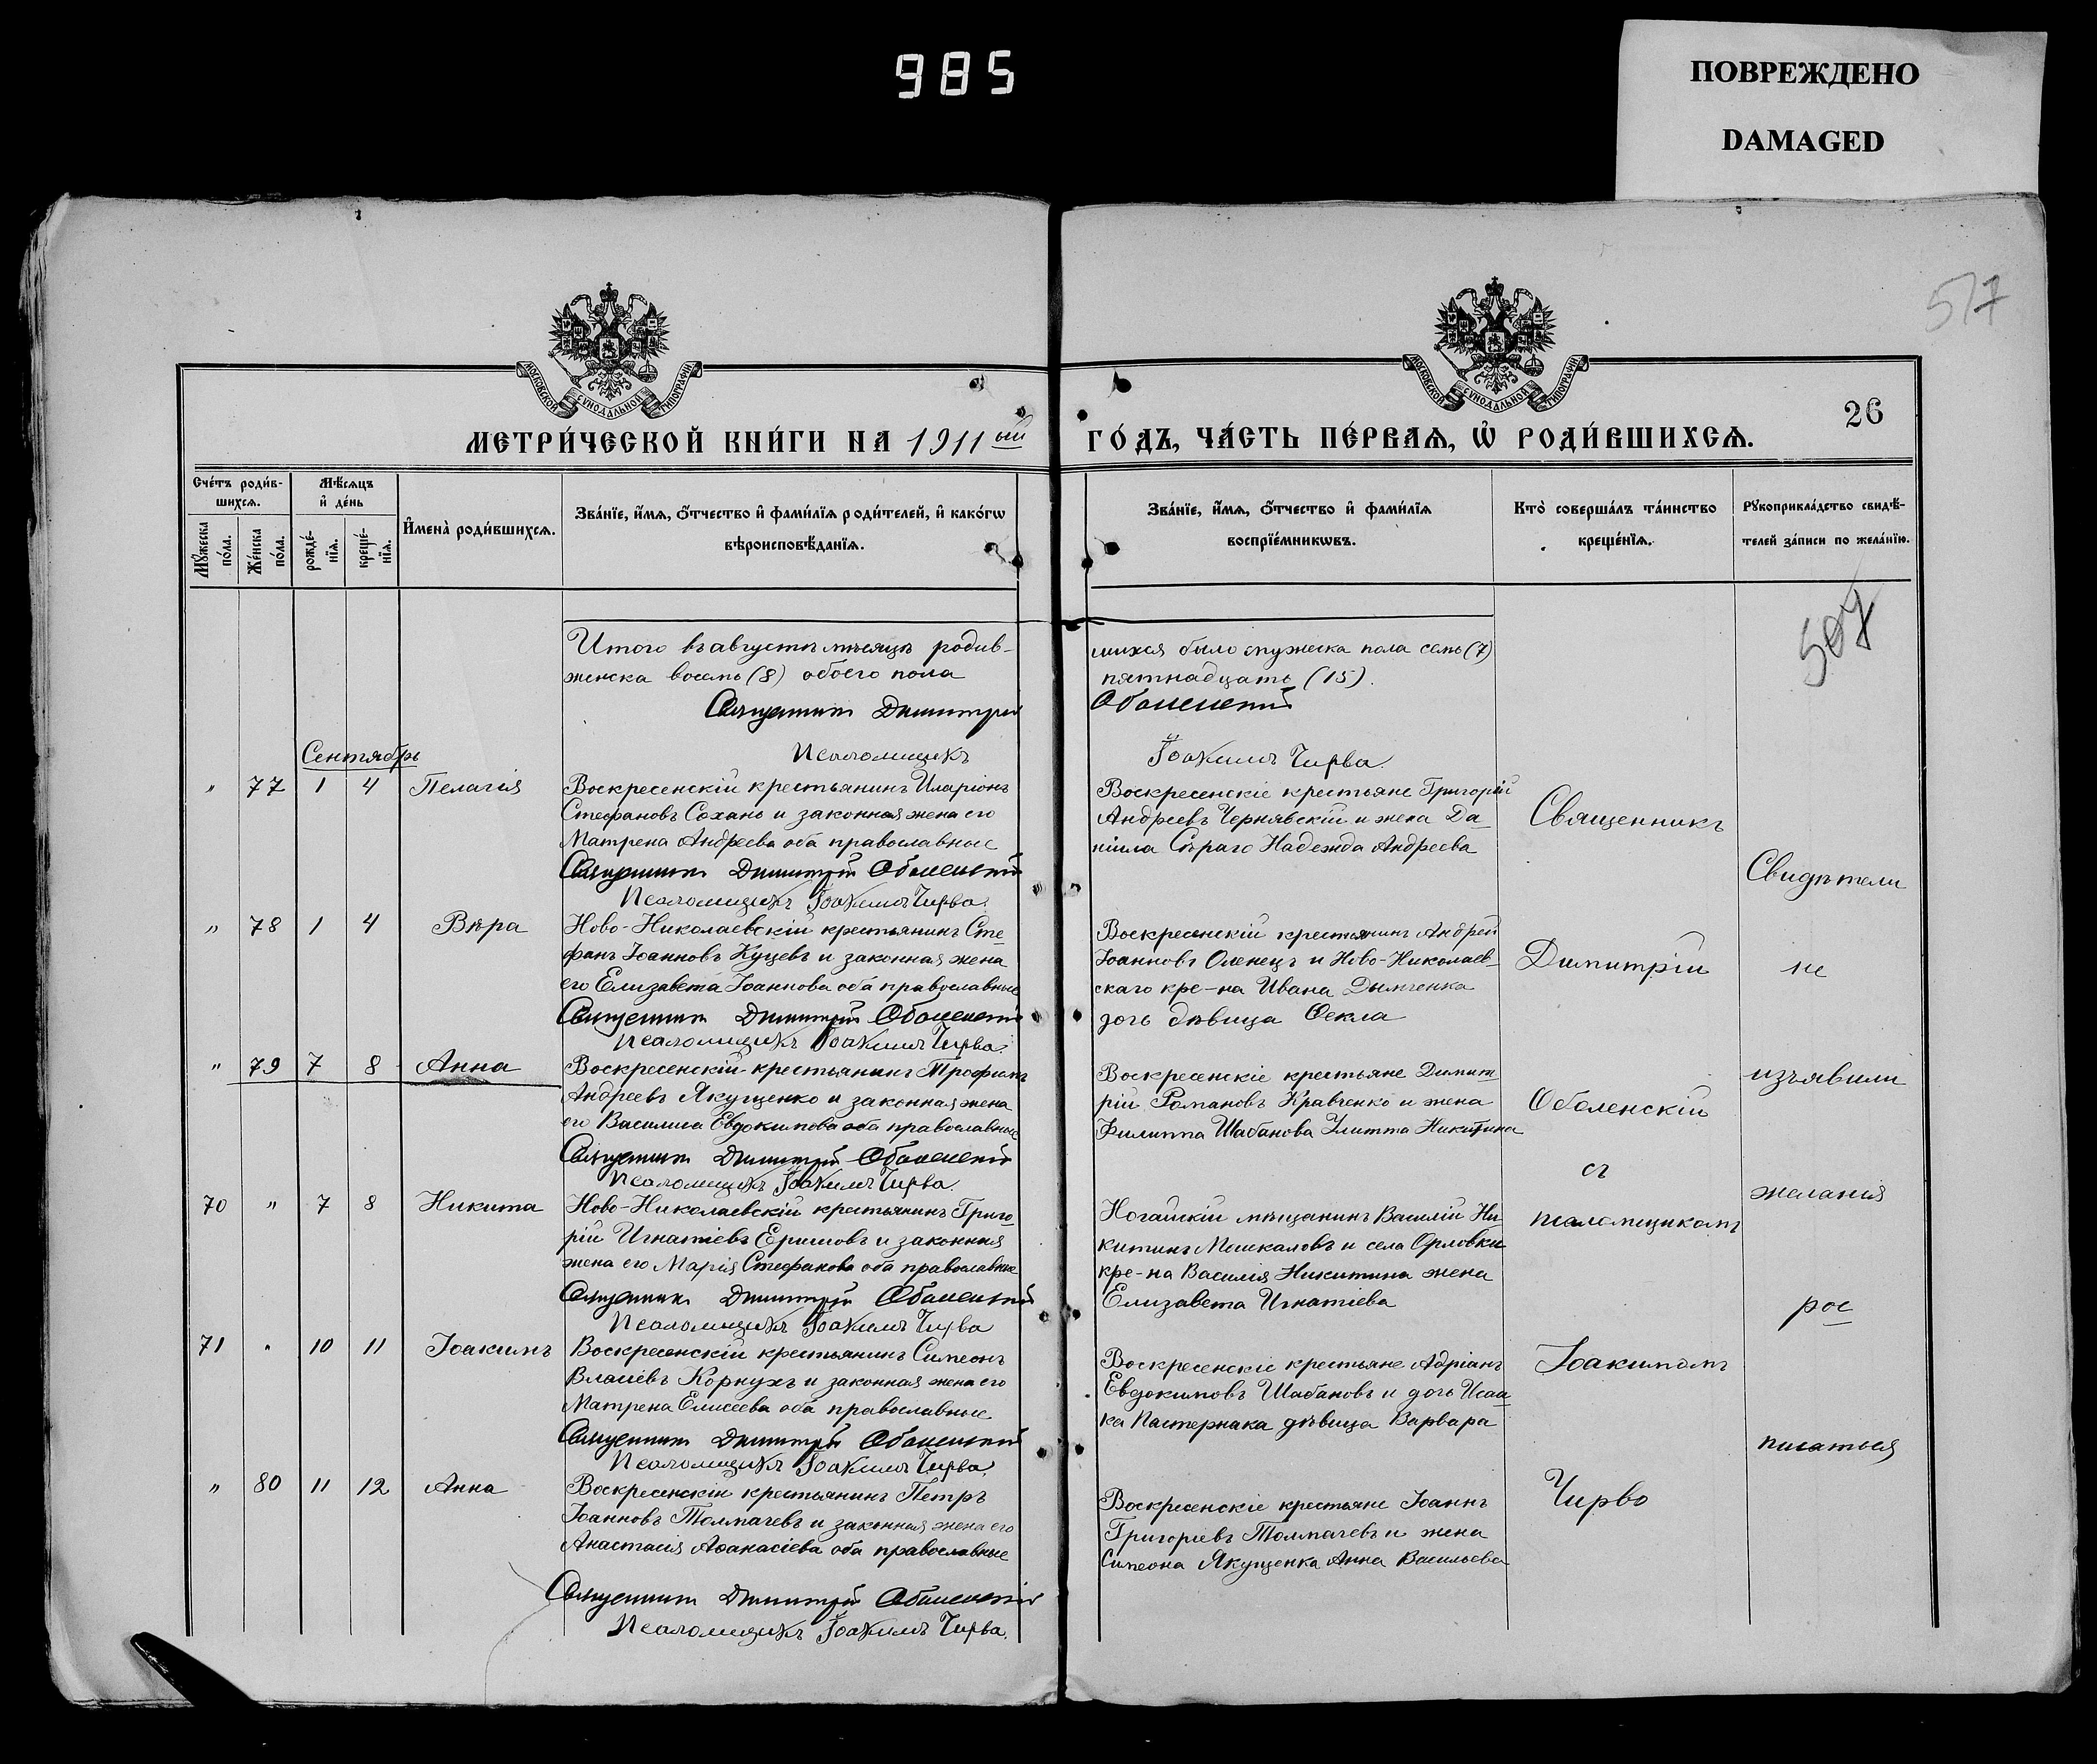 985
ПОВРЕЖДЕНО
DAMAGED
517
МОСКОВСКОЙ СѴНОДАЛЬНОЙ ТИПОГРАФІИ
МОСКОВСКОЙ СѴНОДАЛЬНОЙ ТИПОГРАФІИ
26
МЕТРИ́ЧЕСКОЙ КНИ́ГИ НА 1911ый ГО́ДЪ, ЧА́СТЬ ПЕ́РВАЯ, Ѡ҆ РОДИ́ВШИХСЯ.
Сче́тъ роди́в-
шихся.
Мꙋ́жеска по́ла.
Же́нска по́ла.
Мѣ́сяцъ
и҆ де́нь
рожде́-
нїя.
креще́-
нїя.
И҆мена̀ роди́вшихся.
Зва́нїе, и҆́мя, ѻ҆́тчество и҆ фами́лїя роди́телей, и҆ како́гѡ
вѣроисповѣ́данїя.
Зва́нїе, и҆́мя, ѻ҆́тчество и҆ фами́лїя
воспрїе́мникѡвъ.
Кто̀ соверша́лъ та́инство
креще́нїя.
Рꙋкоприкла́дство свидѣ́-
телей за́писи по жела́нїю.
507
Итого въ августѣ мѣсяцѣ родив-
шихся было мужеска пола семь (7)
женска восемь (8) обоего пола
пятнадцать (15).
Священникъ Димитрій Оболенскій
Псаломщикъ Іоакимъ Чирва.
Сентябрь
" 77 1 4 Пелагія
Воскресенскій крестьянинъ Иларіонъ
Стефановъ Сохань и законная жена его
Матрена Андреева оба православные
Священникъ Димитрій Оболенскій
Псаломщикъ Іоакимъ Чирва.
Воскресенскіе крестьяне Григорій
Андреевъ Чернявскій и жена Да-
ніила Сѣраго Надежда Андреева
" 78 1 4 Вѣра
Ново-Николаевскій крестьянинъ Сте-
фанъ Іоанновъ Куцевъ и законная жена
его Елизавета Іоаннова оба православные
Священникъ Димитрій Оболенскій
Псаломщикъ Іоакимъ Чирва.
Воскресенскій крестьянинъ Андрей
Іоанновъ Оленецъ и Ново-Николаев-
скаго кре-на Ивана Дымченка
дочь дѣвица Ѳекла
" 79 7 8 Анна
Воскресенскій крестьянинъ Трофимъ
Андреевъ Якущенко и законная жена
его Василиса Евдокимова оба православные
Священникъ Димитрій Оболенскій
Псаломщикъ Іоакимъ Чирва.
Воскресенскіе крестьяне Димит-
рій Романовъ Кравченко и жена
Филиппа Шабанова Улитта Никитина
70 " 7 8 Никита
Ново-Николаевскій крестьянинъ Григо-
рій Игнатіевъ Еришовъ и законная
жена его Марія Стефанова оба православные
Священникъ Димитрій Оболенскій
Псаломщикъ Іоакимъ Чирва
Ногайскій мѣщанинъ Василій Ни-
китинъ Мошкаловъ и села Орловки
кре-на Василія Никитина жена
Елизавета Игнатіева
71 " 10 11 Іоакимъ
Воскресенскій крестьянинъ Симеонъ
Власіевъ Корнухъ и законная жена его
Матрена Елисеева оба православные
Священникъ Димитрій Оболенскій
Псаломщикъ Іоакимъ Чирва.
Воскресенскіе крестьяне Адріанъ
Евдокимовъ Шабановъ и дочь Исаа-
ка Пастернака дѣвица Варвара
" 80 11 12 Анна
Воскресенскій крестьянинъ Петръ
Іоанновъ Толмачевъ и законная жена его
Анастасія Аѳанасіева оба православные
Священникъ Димитрій Оболенскій
Псаломщикъ Іоакимъ Чирва.
Воскресенскіе крестьяне Іоаннъ
Григоріевъ Толмачевъ и жена
Симеона Якущенка Анна Васильева
Священникъ
Димитрій
Оболенскій
съ
псаломщикомъ
Іоакимомъ
Чирво
Свидѣтели
не
изъявили
желанія
рос-
писаться